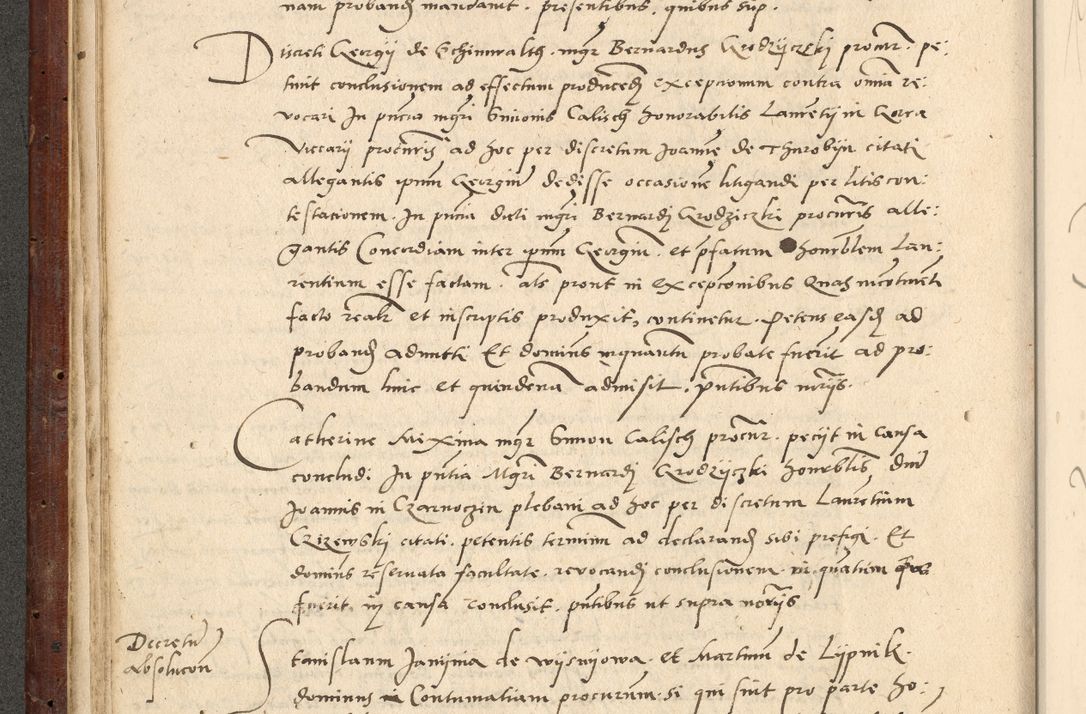 nam proband mandavit. presentibus, quibus sup.
Discreti Georgij de Schinwalth. mgr Bernardus Grodzyczki procur. pe:
tivit conclusionem ad effectum producend exceptionum contra omnia re:
vocari In pñcia mgri Simonis Calisch honorabilis Lauretij in Gorca
Viccarij procuris ad hoc per discretum Joannē de Thurobijn citati
allegantis ipsum Georgiū dedisse occasionē litigandi per litis con:
testacionem. In pñcia dicti mgri Bernardj Grodziczki procuris alle:
gantis Concordiam inter ipsum Georgiū. et pfatum honorblem Lau:
rentium esse factam. als prout in excepconibus Quas incotinenti
facto realr et inscriptis produxit, continetur. Petens easd ad
proband admitti Et dominus inquantu probate fuerit ad pro:
bandum hinc et quindena admisit. pñtibus nrijs.
Catherine Mixina mgr Simon Calisch procur. pecijt in causa
concludi In pñtia Mgri Bernardj Grodzyczki honorblis dni
Joannis in Czarnoczin plebani ad hoc per discretum Lauretium
Czizewskj citati. petentis terminū ad declarand sibi prefigi. Et
dominus reservata facultate. revocandj conclusionem. in quantum
fuerit, in causa conclusit. pñtibus ut supra notrijs
Decretū
absolucon
Stanislaum Janijna de wijsnijowa. et Martinū de Lypnik.
dominus Contumatiam procurum. si qui sint pro parte ho: